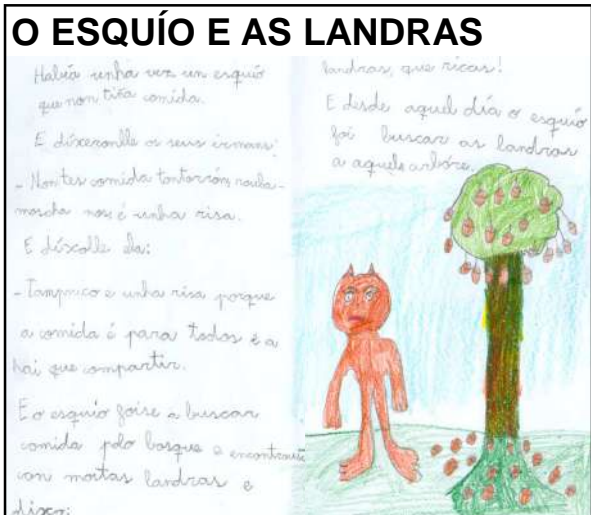 O ESQUÍO E AS LANDRAS
Había unha vez un esquío
que non tiña comida.
E dixéronlle os seus irmans:
- Non tes comida tontorrón, rouba-
moscha nos é unha risa.
E díxolle ela:
- Tampouco e unha risa porque
a comida é para todos e a
hai que compartir.
E o esquío foise a buscar
comida polo bosque e encontrouse
con moitas landras e
dixo:
landras, que ricas!
E desde aquel día o esquío
foi buscar as landras
a aquele arbóre.